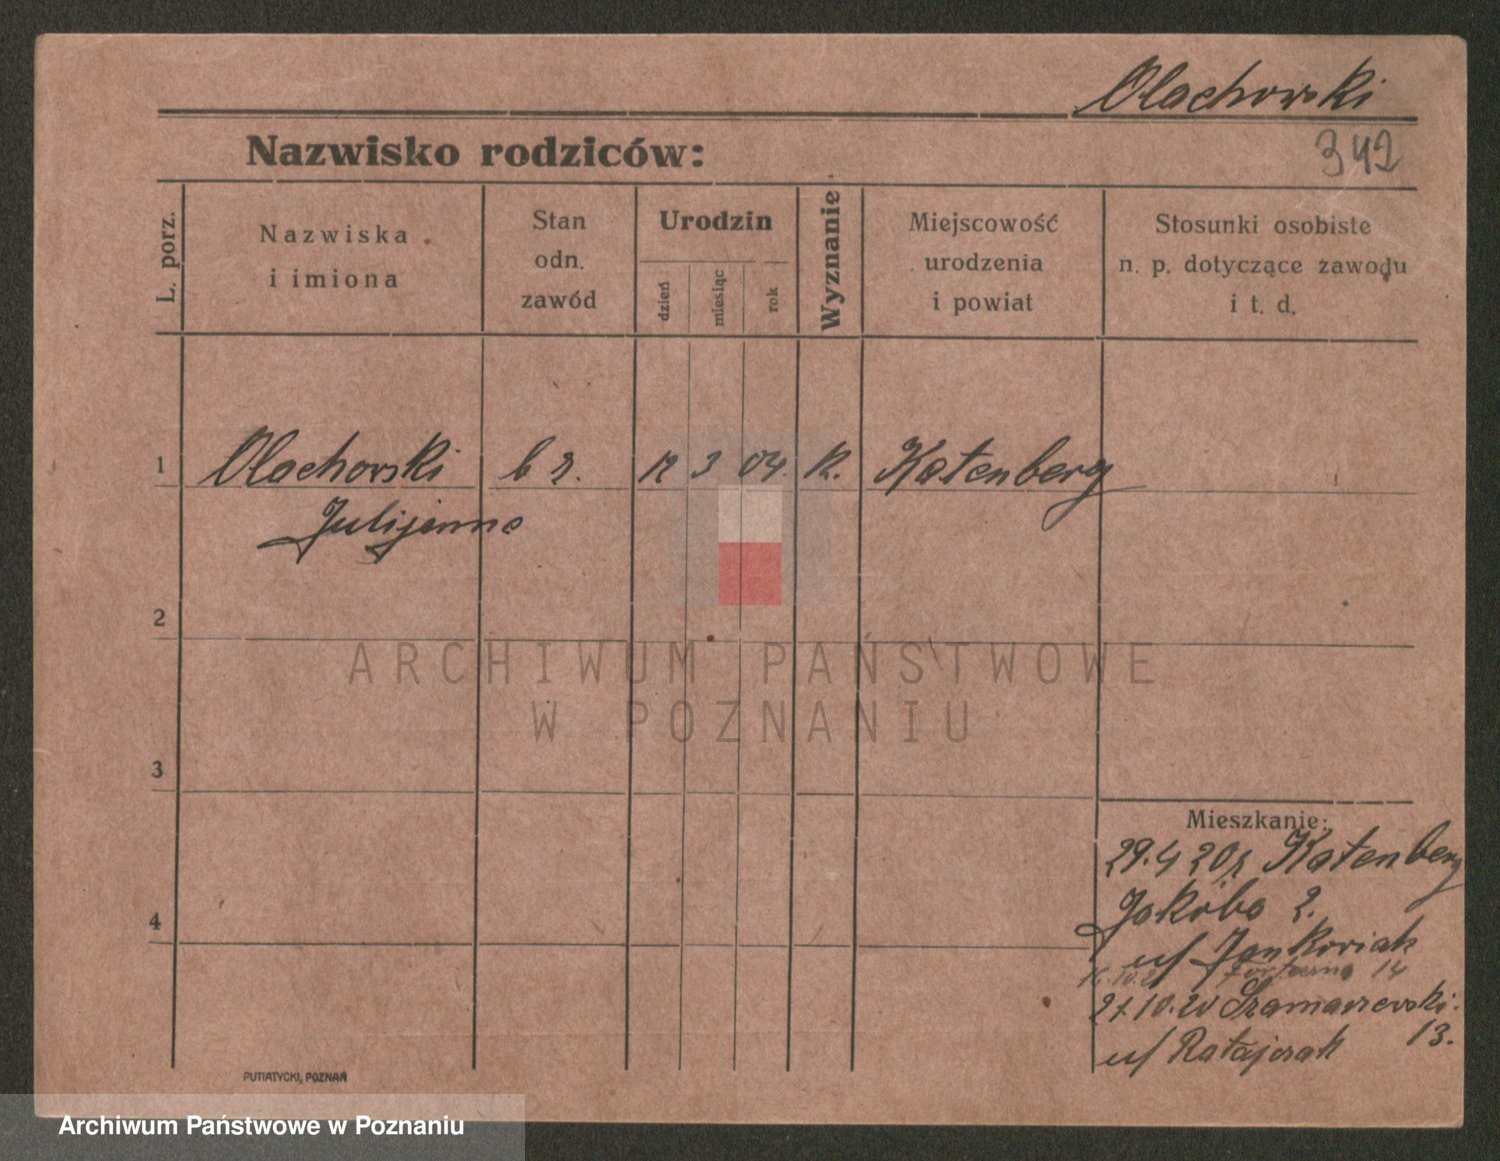 Olachowski
342
Nazwisko rodziców:
L. porz.
Nazwiska
i imiona
Stan
odn.
zawód
Urodzin
dzień
miesiąc
rok
Wyznanie
Miejscowość
urodzenia
i powiat
Stosunki osobiste
n. p. dotyczące zawodu
i t. d.
1 Olachowski 3 04. K. Katenberg
Julijanna
2
ARCHIWUM PAŃSTWOWE
W POZNANIU
3
Mieszkanie:
29.4 20 Katenberg
4 Jakóba 2.
u/ Jankowiak
14
27.10.20 Szamarzewski
13.
u/ Ratajczak
PUTIATYCKI, POZNAŃ
Archiwum Państwowe w Poznaniu